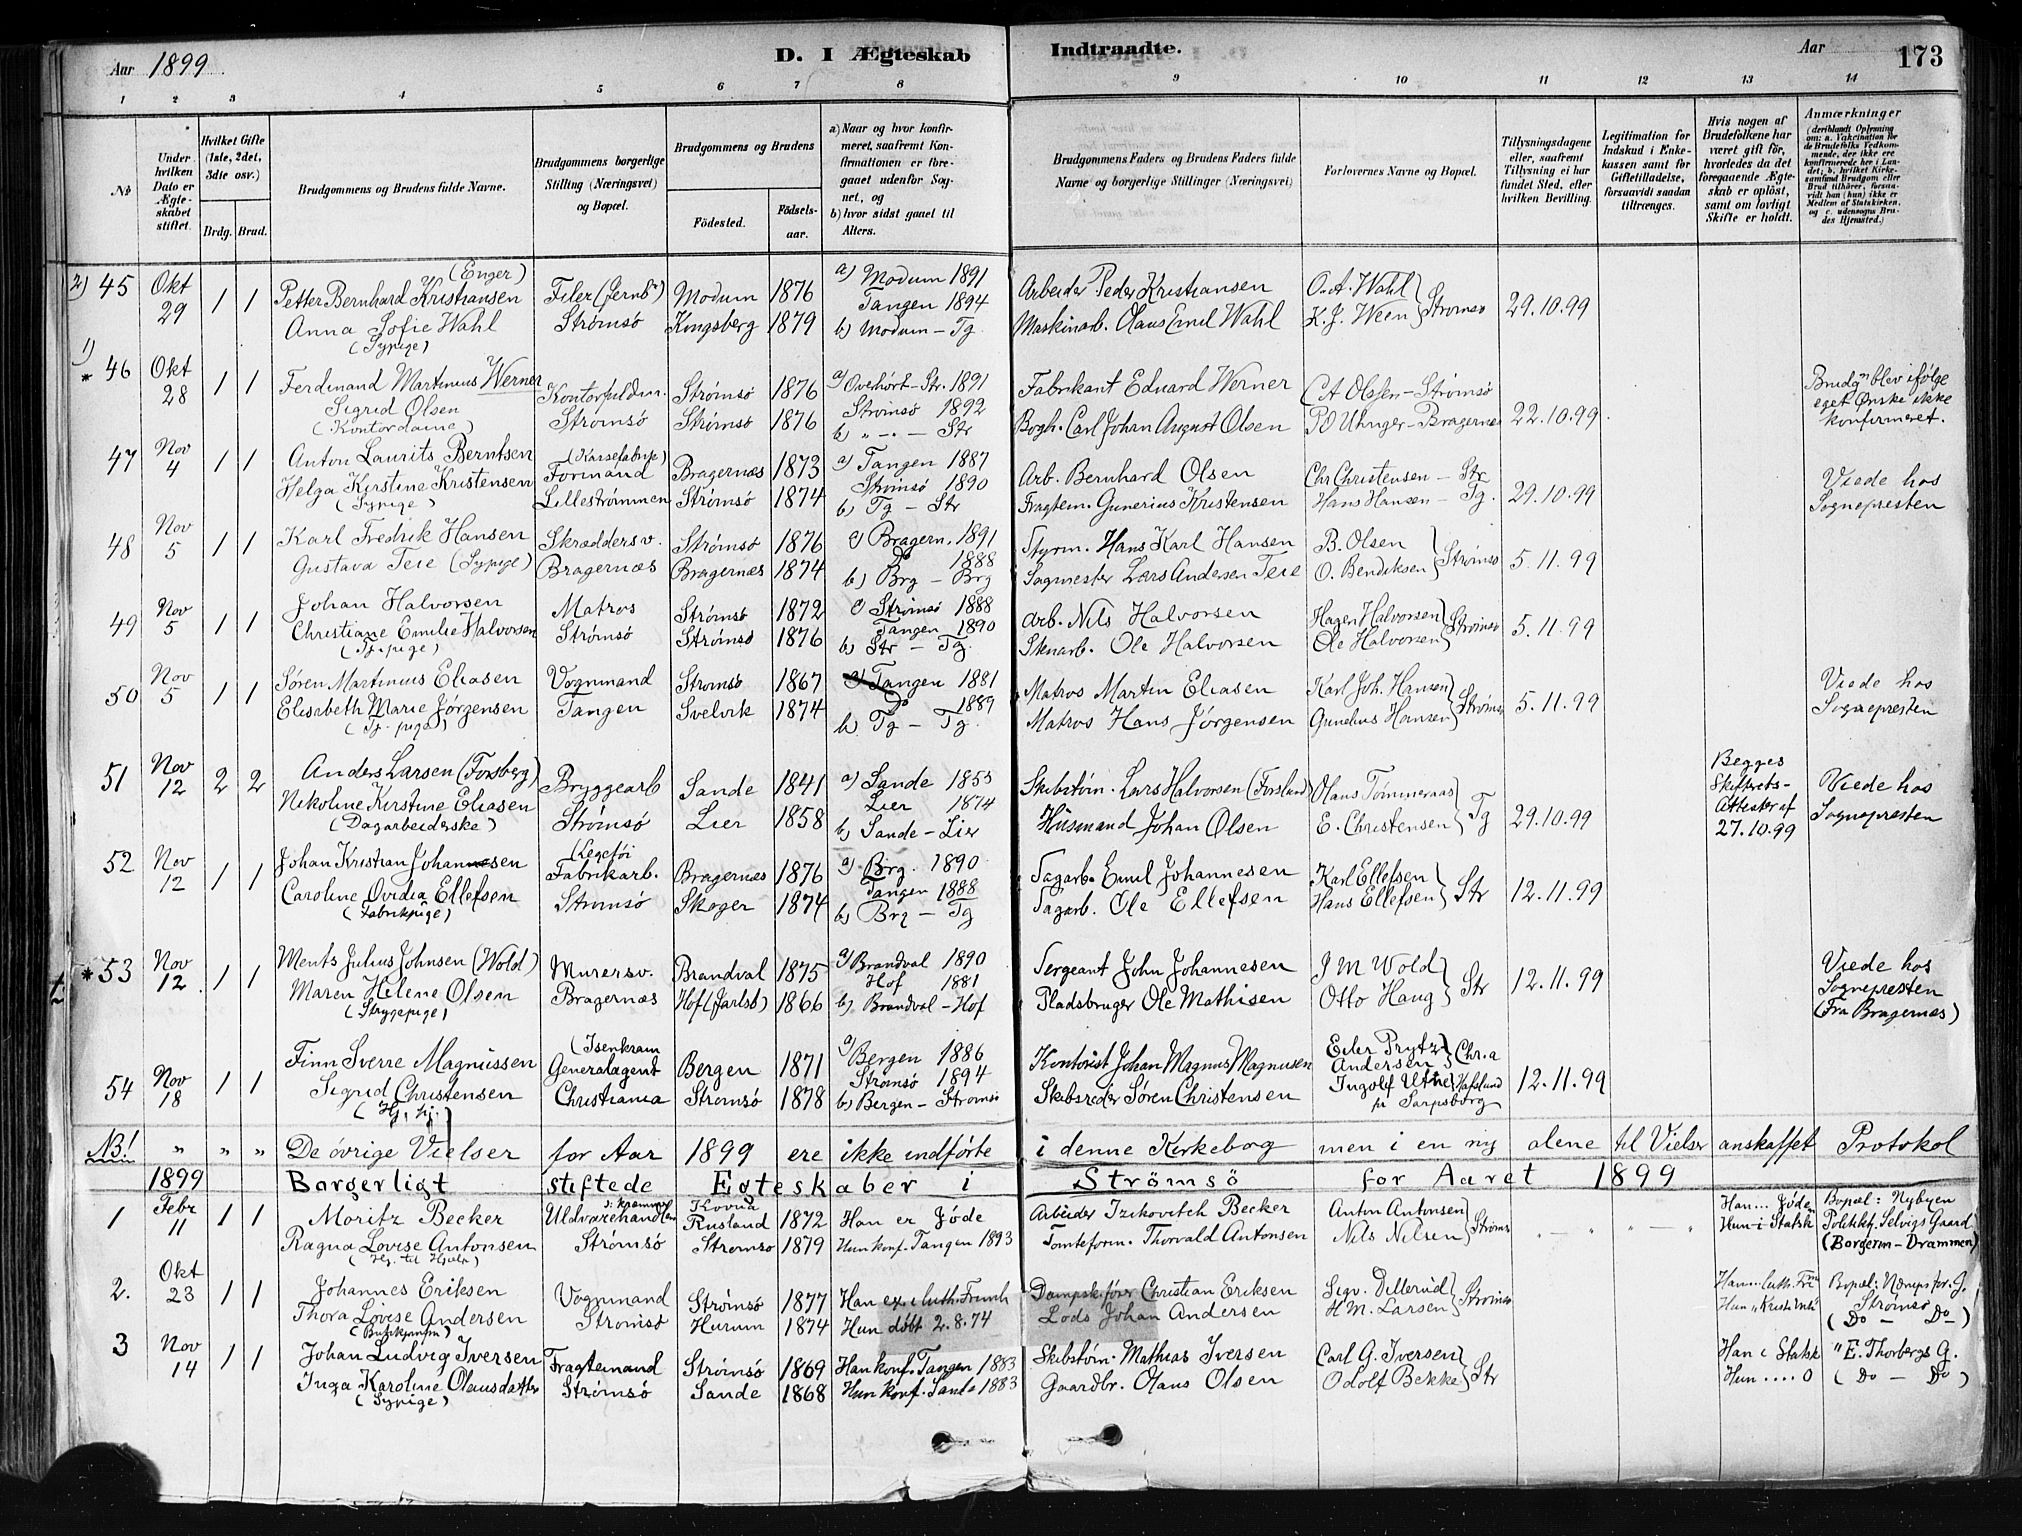 Aar 1899
D. I Ægteskab Indtraadte.
Aar 173
1 2 3 4 5 6 7 8 9 10 11 12 13 14
No
Under hvilken Dato er Ægteskabet stiftet.
Hvilket Gifte (1ste, 2det, 3die osv.)
Brdg. Brud.
Brudgommens og Brudens fulde Navne.
Brudgommens borgerlige Stilling (Næringsvei) og Bopæl.
Brudgommens og Brudens
Födested. Födsels-aar.
a) Naar og hvor konfirmeret, saafremt Konfirmationen er foregaaet udenfor Sognet, og
b) hvor sidst gaaet til Alters.
Brudgommens Faders og Brudens Faders fulde Navne og borgerlige Stillinger (Næringsvei)
Forlovernes Navne og Bopæl.
Tillysningsdagene eller, saafremt Tillysning ei har fundet Sted, efter hvilken Bevilling.
Legitimation for Indskud i Enkekassen samt for Giftetilladelse, forsaavidt saadan tiltrænges.
Hvis nogen af Brudefolkene har været gift før, hvorledes da det foregaaende Ægteskab er oplöst, samt om lovligt Skifte er holdt.
Anmærkninger (deriblandt Oplysning om: a. Vakcination for de Brudefolks Vedkommende, der ikke ere konfirmerede her i Landet; b. hvilket Kirkesamfund Brudgom eller Brud tilhörer, forsaavidt han (hun) ikke er Medlem af Statskirken, og c. udensogns Brudes Hjemsted.)
2) 45 Okt 29 1 1 Petter Bernhard Kristiansen (Enger) Filer (Jernb) Modum 1876 a) Modum 1891 Arbeider Peder Kristiansen O.A. Wahl Strømsø 29.10.99
Anna Sofie Wahl (Sypige) Strømsö Kongsberg 1879 Tangen 1894 b) Modum - Tg. Maskinarb. Olaus Emil Wahl K. J. Ween
1) * 46 Okt 28 1 1 Ferdinand Martinius Werner Kontorfuldm. Strømsö 1876 a) Overhørt - Str. 1891 Fabrikant Eduard Werner C A Olsen - Strømsö Brudg. blev ifölge eget Ønske ikke konfirmeret.
Sigrid Olsen (Kontordame) Strømsö Strømsö 1876 Strømsö 1892 b) " - " - Str Bogh. Carl Johan August Olsen P O Uhnger - Bragernæs 22.10.99
47 Nov 4 1 1 Anton Laurits Berntsen (Kassefabrik) Formand Bragernæs 1873 a) Tangen 1887 Arb. Bernhard Olsen Chr Christensen - Str Viede hos Sognepresten
Helga Kirstine Kristensen (Sypige) Lillestrømmen Strømsö 1874 Strømsö 1890 b) Tg - Str Fragtem. Gunerius Kristensen Hans Hansen - Tg. 29.10.99
48 Nov 5 1 1 Karl Fredrik Hansen Skræddersv. Strømsö 1876 a) Bragern. 1891 Styrm. Hans Karl Hansen B. Olsen Strømsö 5.11.99
Gustava Teie (Sypige) Bragernæs Bragernæs 1874 Do 1888 b) Brg - Brg Sagmester Lars Andersen Teie O. Bendiksen
49 Nov 5 1 1 Johan Halvorsen Matros Strømsö 1872 a) Strømsö 1888 Arb. Nils Halvorsen Hagen Halvorsen Strømsö 5.11.99
Christiane Emilie Halvorsen (Tj. pige) Strømsö Strømsö 1876 Tangen 1890 b) Str - Tg. Stenarb. Ole Halvorsen Ole Halvorsen
50 Nov 5 1 1 Søren Martinius Eliasen Vognmand Strømsö 1867 a) Tangen 1881 Matros Martin Eliasen Karl Joh. Hansen Strømsö 5.11.99 Viede hos Sognepresten
Elisabeth Marie Jörgensen (Tj. pige) Tangen Svelvik 1874 Do 1889 b) Tg - Tg. Matros Hans Jörgensen Gunelius Hansen
51 Nov 12 2 2 Anders Larsen (Forsberg) Bryggearb Sande 1841 a) Sande 1855 Skibstöm. Lars Halvorsen (Forslund) Olaus Tömmeraas Tg 29.10.99 Begges Skifterets-Attester af 27.10.99 Viede hos Sognepresten
Nikoline Kirstine Eliasen (Dagarbeiderske) Strømsö Lier 1858 Lier 1874 b) Sande - Lier Husmand Johan Olsen E. Christensen
52 Nov 12 1 1 Johan Kristian Johannesen Fabrikarb. Bragernæs 1876 a) Brg. 1890 Sagarb. Emil Johannesen Karl Ellefsen Str 12.11.99
Caroline Ovidia Ellefsen (Fabrikpige) Strømsö Skoger 1874 Tangen 1888 b) Brg - Tg Sagarb. Ole Ellefsen Hans Ellefsen
* 53 Nov 12 1 1 Ments Julius Johnsen (Wold) Murersv. Brandval 1875 a) Brandval 1890 Sergeant John Johannesen J M Wold Str 12.11.99 Viede hos Sognepresten (Fra Bragernæs)
Maren Helene Olsen (Strygepige) Bragernæs Hof (Jarlsb) 1866 Hof 1881 b) Brandval - Hof Pladsbruger Ole Mathisen Otto Haug
54 Nov 18 1 1 Finn Sverre Magnussen (Isenkram Generalagent Bergen 1871 a) Bergen 1886 Kontorist Johan Magnus Magnusen Eiler Prytz Andersen Chr.a
Sigrid Christensen (Hj. hj.) Christiania Strømsö 1878 Strømsö 1894 b) Bergen - Strømsö Skibsreder Sören Christensen Ingolf Utne Hafslund pr Sarpsborg 12.11.99
NB! " " " De övrige Vielser for Aar 1899 ere ikke indförte i denne Kirkebog men i en ny alene til Vielser anskaffet Protokol
1899 Borgerligt stiftede Egteskaber i Strömsö for Aaret 1899
1 Febr 11 1 1 Moritz Becker Uldvarehandler Kovna Rusland 1872 Han er Jöde Arbeider Izikovitch Becker Anton Antonsen Strømsö " - " - " Han... Jöde Bopæl: Nybyen
Ragna Lovise Antonsen (Hj. til Hjælp) Strømsö Strømsö 1879 Hun konf. Tangen 1893 Tomteform. Thorvald Antonsen Nils Nilsen Hun i Statsk Politikf. Selvigs Gaard (Borgerm - Drammen)
2. Okt 23 1 1 Johannes Eriksen Vognmand Strømsö 1877 Han ex. i luth. Frimh Dampsk. förer Christian Eriksen Sigv. Dillerud Strømsö Bopæl: G. Strømsö (Do - Do)
Thora Lovise Andersen Strømsö Hurum 1874 Hun døbt 2.8.74 Lods Johan Andersen H M. Larsen
3 Nov 14 1 1 Johan Ludvig Iversen Fragtemand Strømsö 1869 Han konf. Tangen 1883 Skibstöm. Mathias Iversen Carl G. Iversen Str Han i Statsk " E. Thorbergs G.
Inga Karoline Olausdatter (Sypige) Strømsö Sande 1868 Hun konf. Sande 1883 Gaardbr. Olaus Olsen Odolf Bekke Hun .... 0 (Do - Do)